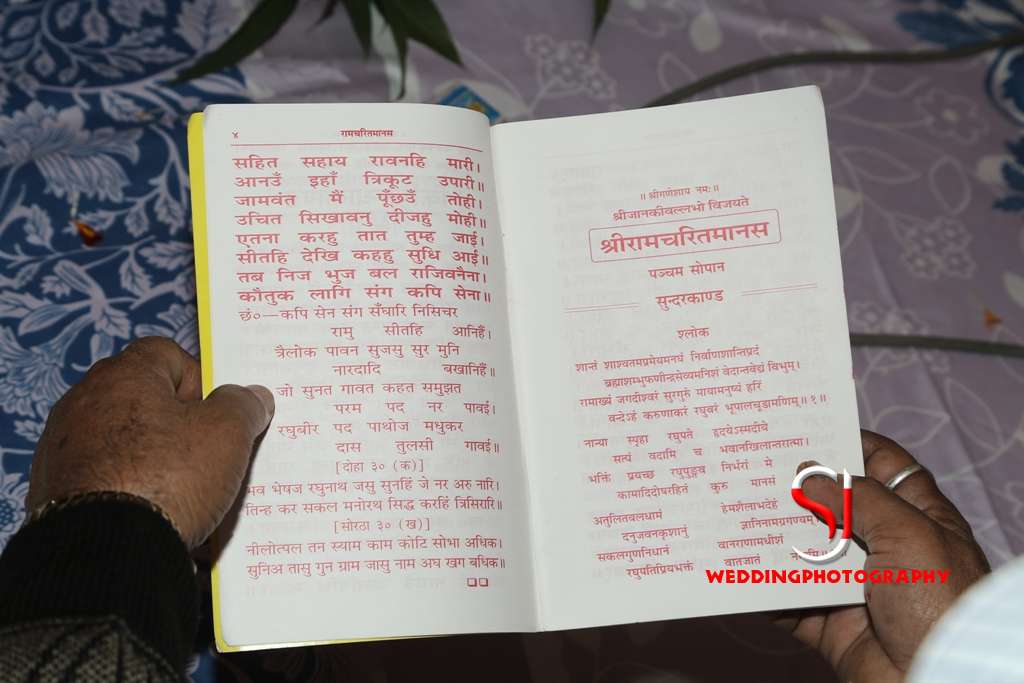 ४
रामचरितमानस
सहित सहाय रावनहि मारी।
आनउँ इहाँ त्रिकूट उपारी॥
जामवंत मैं पूँछउँ तोही।
उचित सिखावनु दीजहु मोही॥
एतना करहु तात तुम्ह जाई।
सीतहि देखि कहहु सुधि आई॥
तब निज भुज बल राजिवनैना।
कौतुक लागि संग कपि सेना॥
छं०—कपि सेन संग सँघारि निसिचर
रामु सीतहि आनिहैं।
त्रैलोक पावन सुजसु सुर मुनि
नारदादि बखानिहैं॥
जो सुनत गावत कहत समुझत
परम पद नर पावई।
रघुबीर पद पाथोज मधुकर
दास तुलसी गावई॥
[दोहा ३० (क)]
भव भेषज रघुनाथ जसु सुनहिं जे नर अरु नारि।
तिन्ह कर सकल मनोरथ सिद्ध करहिं त्रिसिरारि॥
[सोरठा ३० (ख)]
नीलोत्पल तन स्याम काम कोटि सोभा अधिक।
सुनिअ तासु गुन ग्राम जासु नाम अघ खग बधिक॥
॥ श्रीगणेशाय नमः॥
श्रीजानकीवल्लभो विजयते
श्रीरामचरितमानस
पञ्चम सोपान
सुन्दरकाण्ड
श्लोक
शान्तं शाश्वतमप्रमेयमनघं निर्वाणशान्तिप्रदं
ब्रह्माशम्भुफणीन्द्रसेव्यमनिशं वेदान्तवेद्यं विभुम्।
रामाख्यं जगदीश्वरं सुरगुरुं मायामनुष्यं हरिं
वन्देऽहं करुणाकरं रघुवरं भूपालचूडामणिम्॥ १॥
नान्या स्पृहा रघुपते हृदयेऽस्मदीये
सत्यं वदामि च भवानखिलान्तरात्मा।
भक्तिं प्रयच्छ रघुपुङ्गव निर्भरां मे
कामादिदोषरहितं कुरु मानसं
अतुलितबलधामं हेमशैलाभदेहं
दनुजवनकृशानुं ज्ञानिनामग्रगण्यम्।
सकलगुणनिधानं वानराणामधीशं
रघुपतिप्रियभक्तं वातजातं
SJ
WEDDINGPHOTOGRAPHY